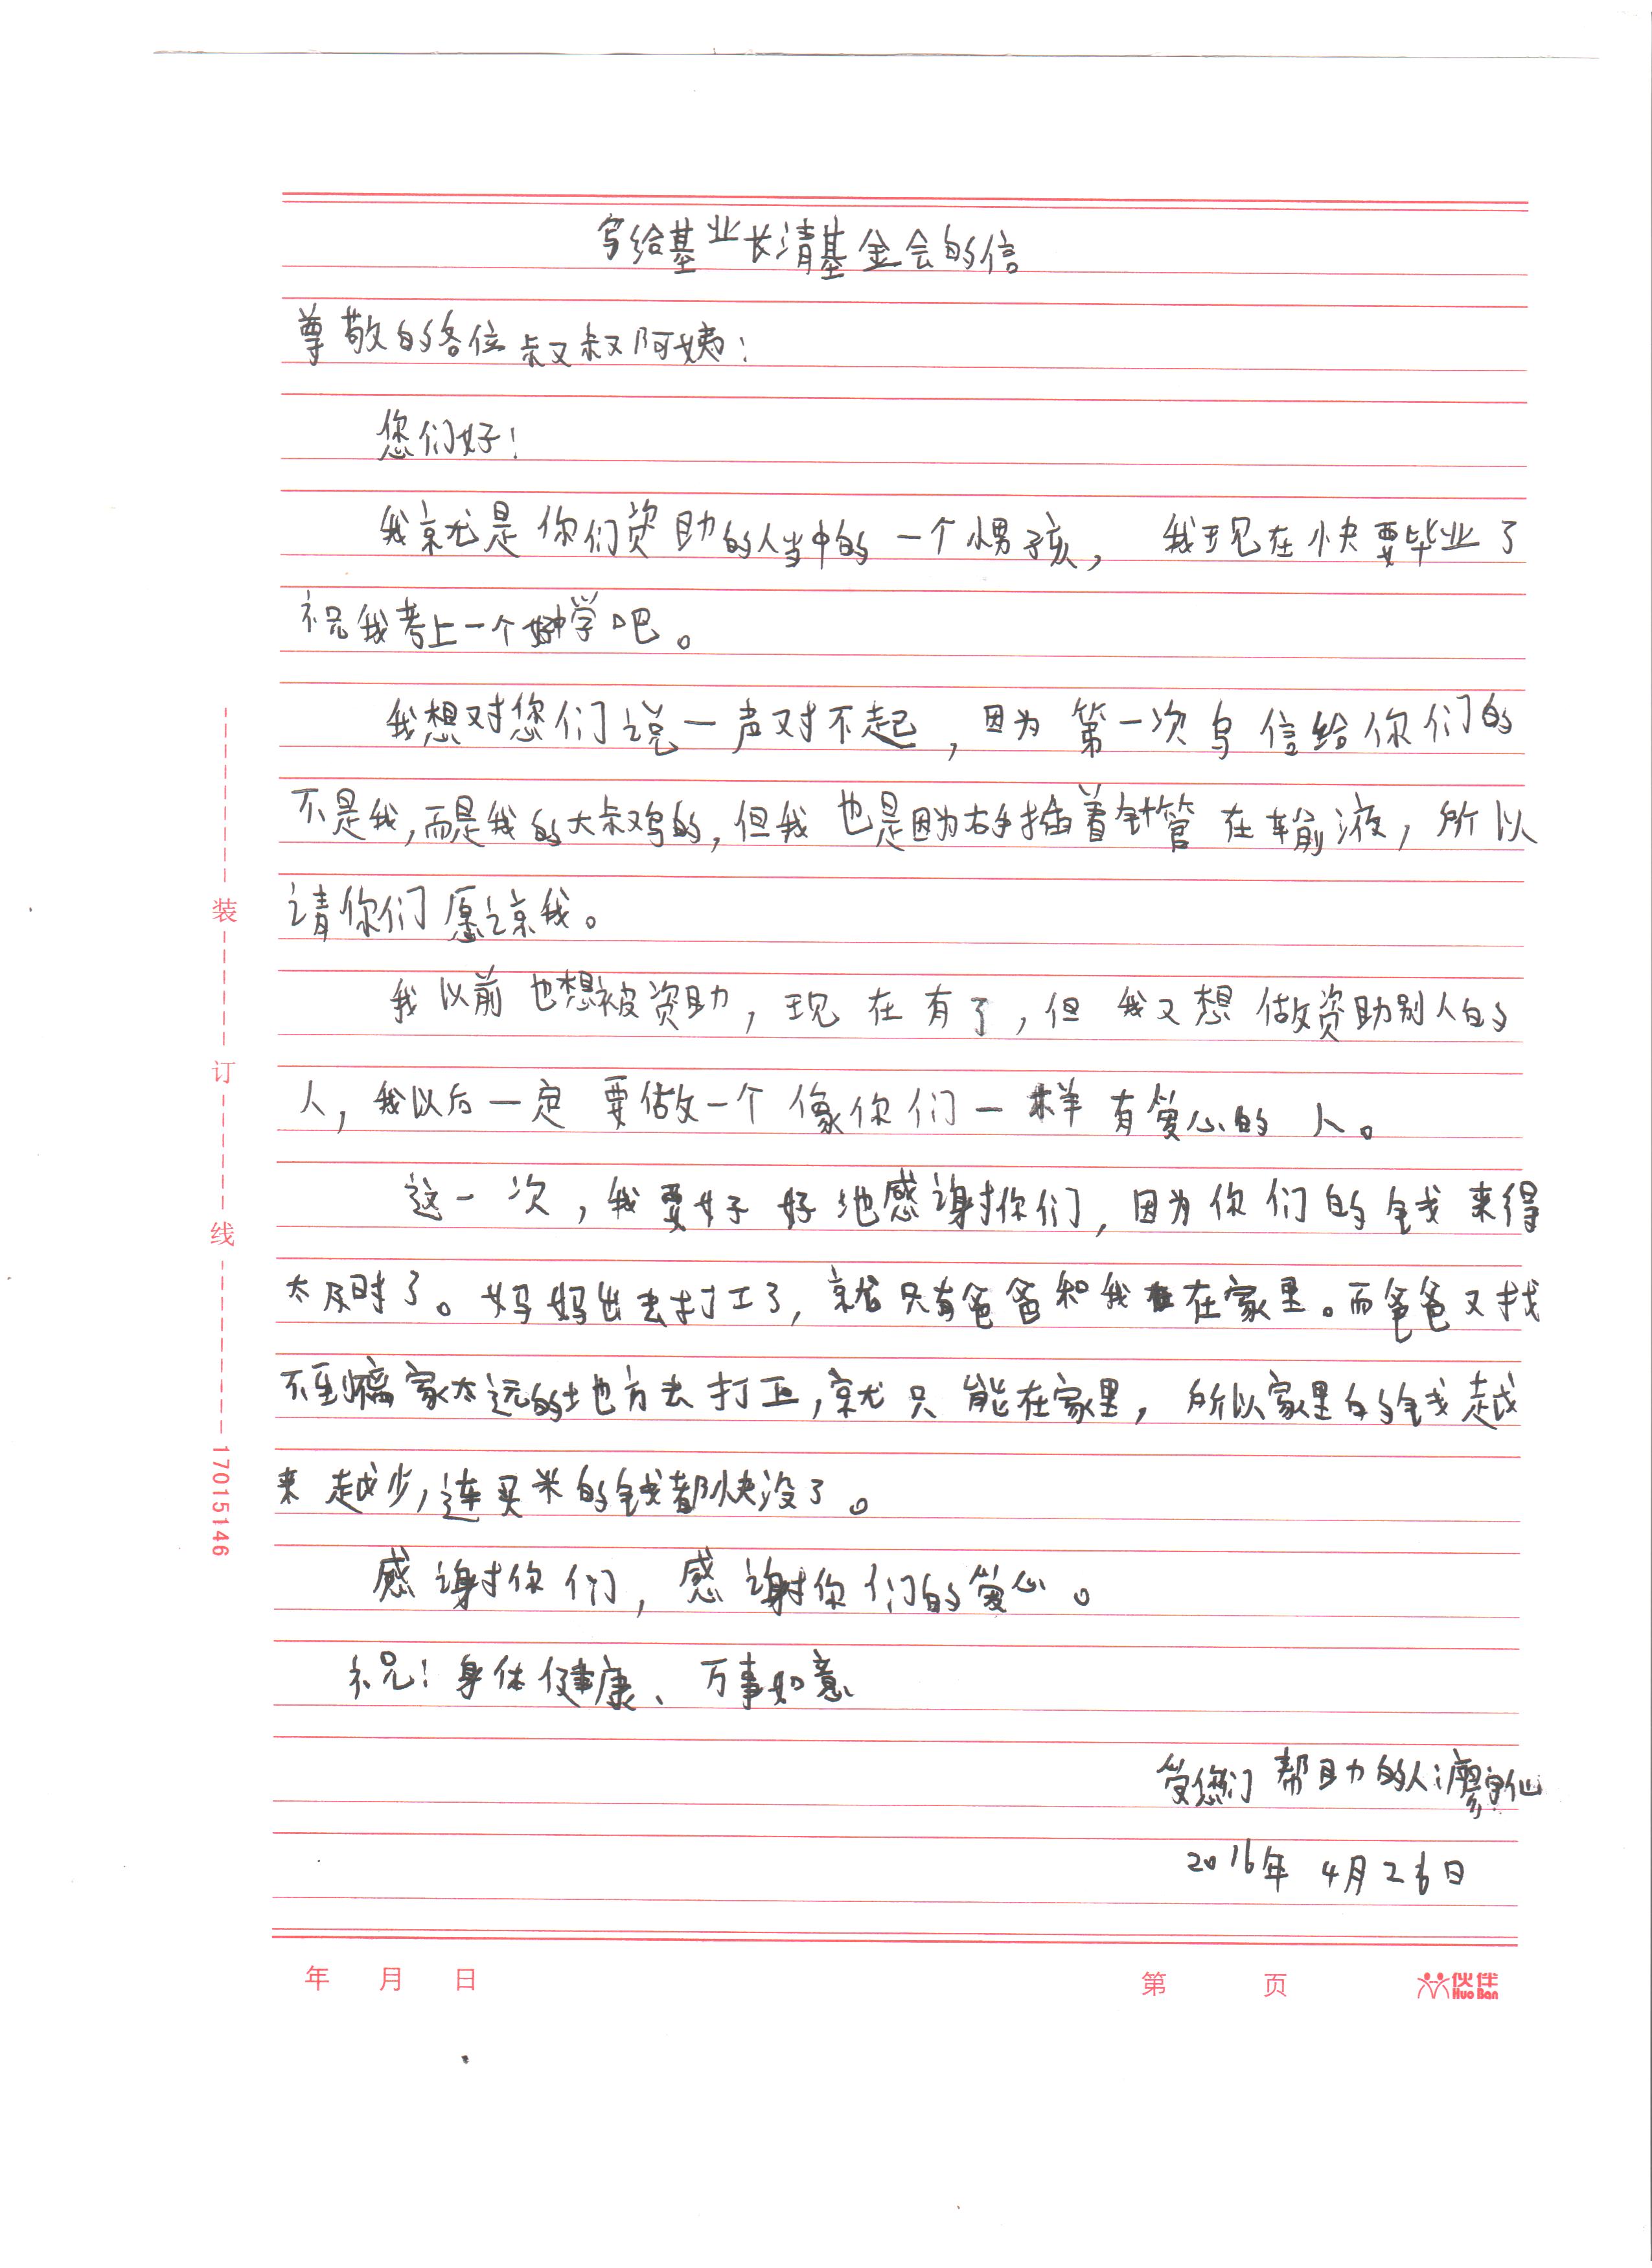 写给基业长清基金会的信
尊敬的各位叔叔阿姨：
您们好！
我就是你们资助的人当中的一个小男孩，我现在快要毕业了
祝我考上一个好中学吧。
我想对您们说一声对不起，因为第一次写信给你们的
不是我，而是我的大叔写的，但我也是因为右手插着针管在输液，所以
请你们愿谅我。
我以前也想被资助，现在有了，但我又想做资助别人的
人，我以后一定要做一个像你们一样有爱心的人。
这一次，我要好好地感谢你们，因为你们的钱来得
太及时了。妈妈出去打工了，就只有爸爸和我在家里。而爸爸又找
不到离家太远的地方去打工，就只能在家里，所以家里的钱越
来越少，连买米的钱都快没了。
感谢你们，感谢你们的爱心。
祝！身体健康、万事如意
受您们帮助的人：廖宇仙
2016年4月26日
装订线 17015146
年 月 日 第 页 伙伴 Huo Ban